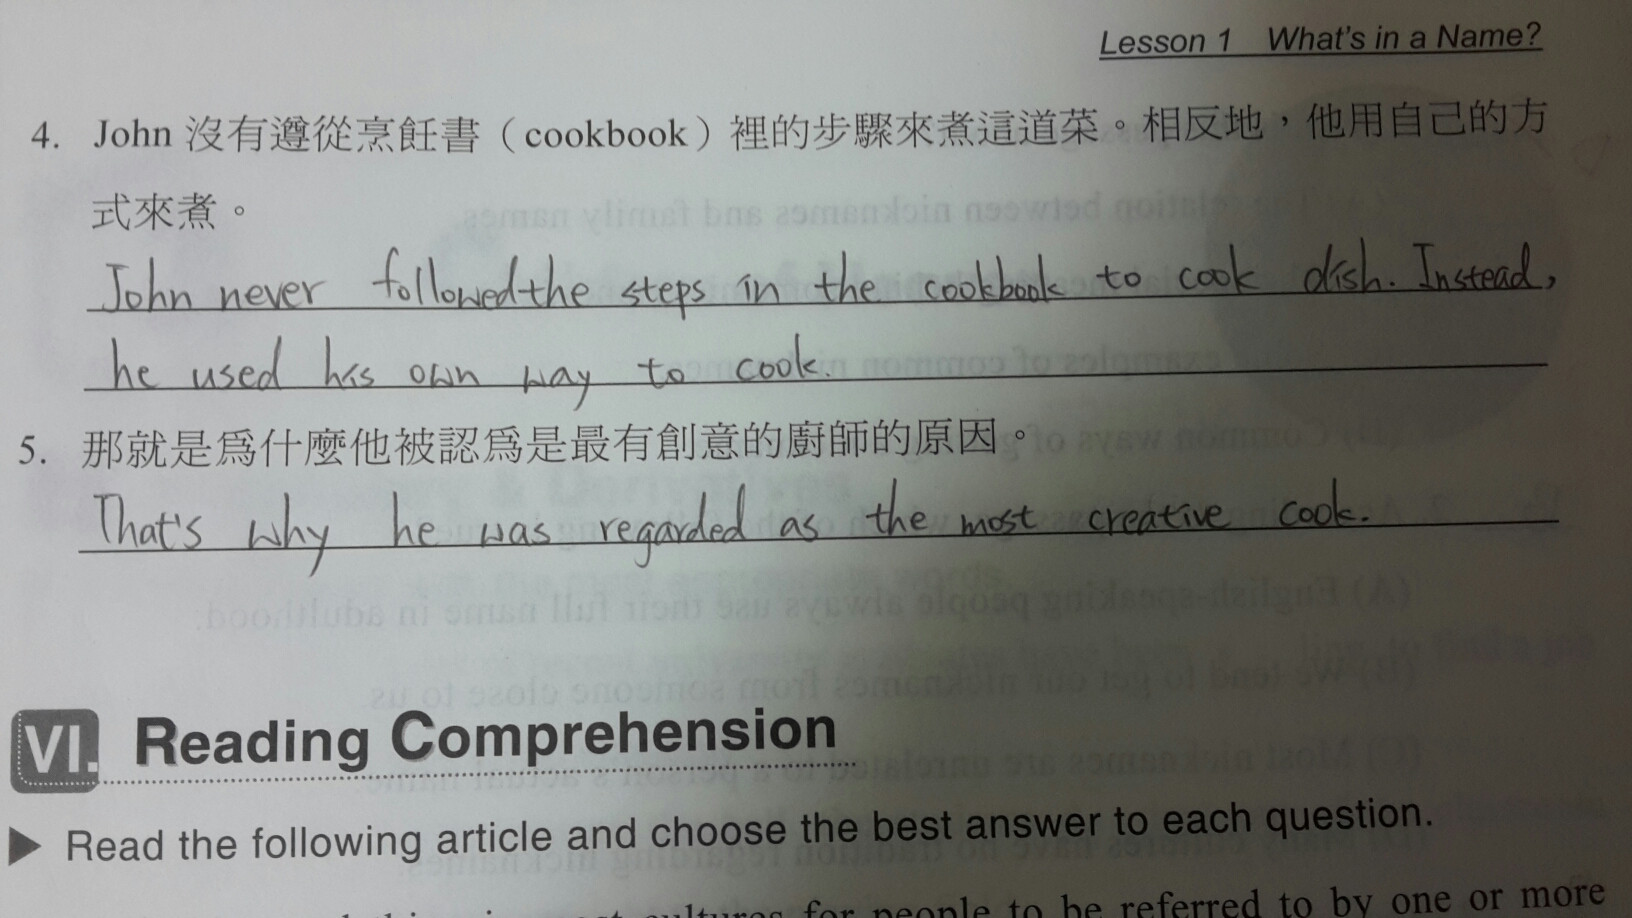 Lesson 1 What's in a Name?
4. John 沒有遵從烹飪書（cookbook）裡的步驟來煮這道菜。相反地，他用自己的方
式來煮。
John never followed the steps in the cookbook to cook dish. Instead,
he used his own way to cook.
5. 那就是為什麼他被認為是最有創意的廚師的原因。
That's why he was regarded as the most creative cook.
VI. Reading Comprehension
▶ Read the following article and choose the best answer to each question.
cultures for people to be referred to by one or more